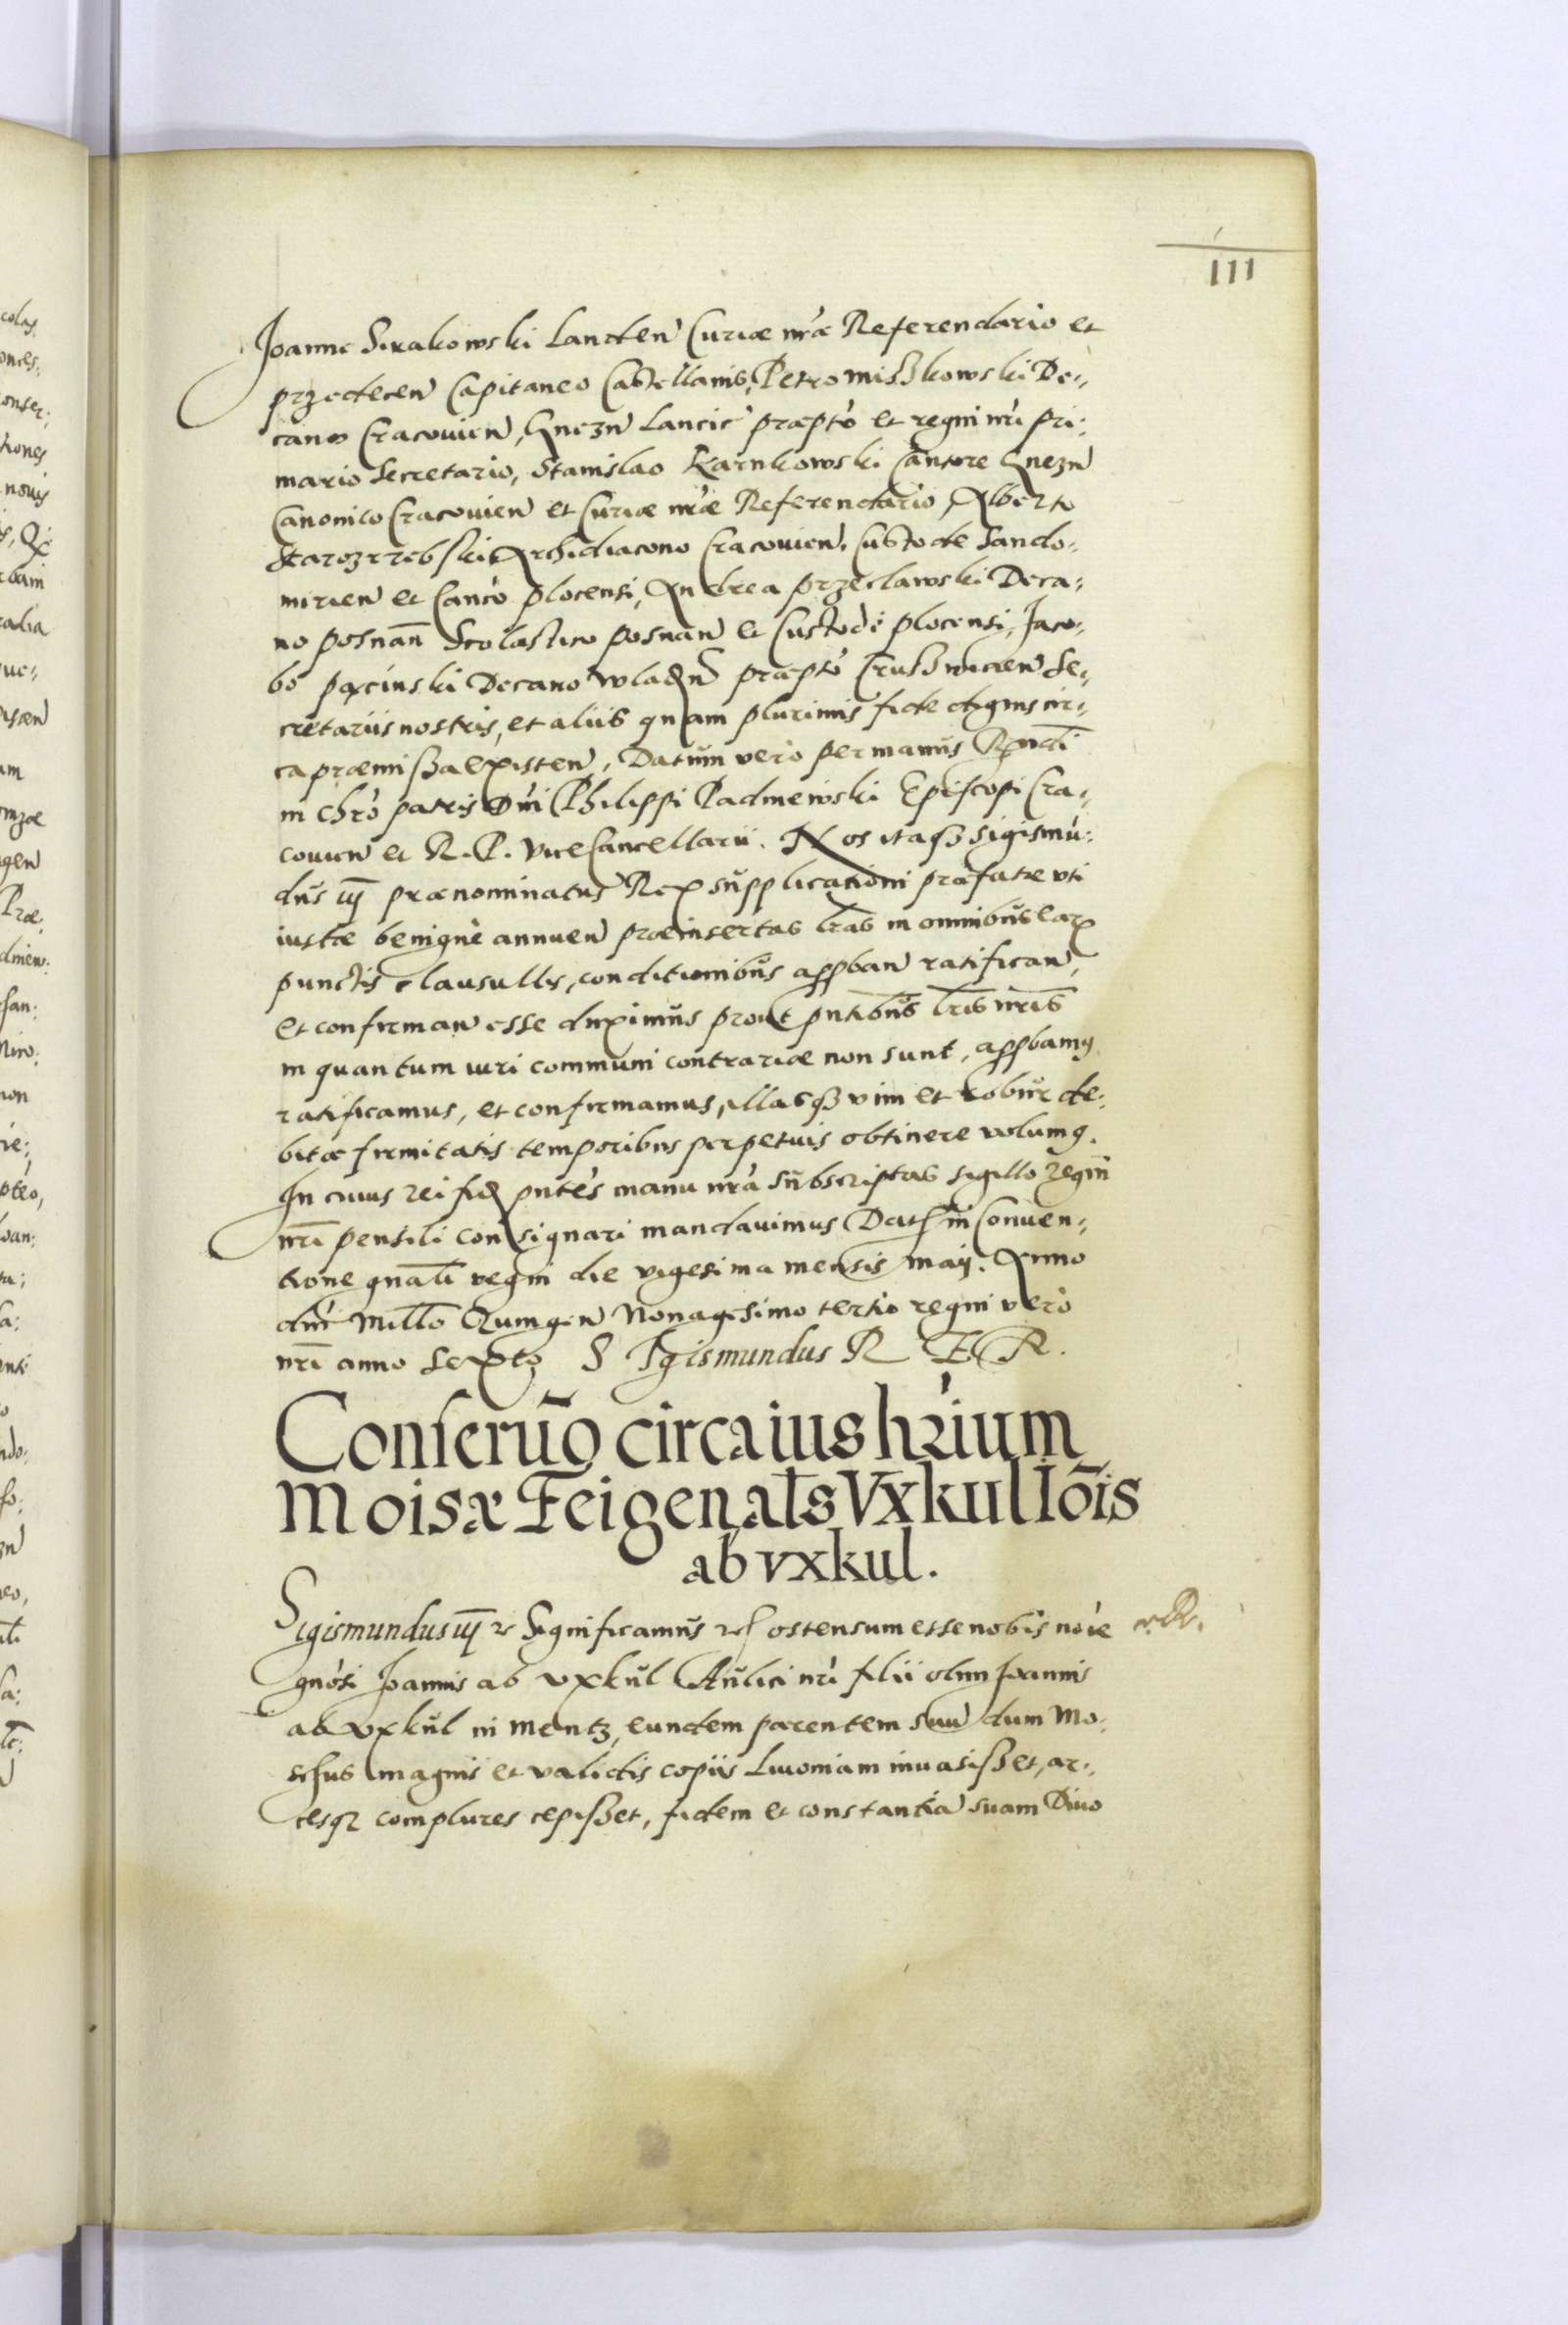 111
Joanne Sirakowski Landen Curiæ nr̃æ Referendario et
przedecen Capitaneo Castellanis, Petro Mißkowski De„
cano Cracovien, Gnezn Lancic præpto et regni nr̃i pri:
mario Secretario, Stanislao Karnkowski Cantore Gnezn
Canonico Cracovien et Curiæ nr̃æ Referendario, Alberto
Starozrzebski Archidiacono Cracovien. Custode Sando:
mirien et Canco plocensi, Andrea przeclawski Deca:
no posnan Scolastico posnan et Custode plocensi, Jaco:
bo pącinski Decano wladn præpto Crußwicien Se„
cretariis nostris, et aliis quam plurimis fide dignis cir„
ca præmißa existen. Datum vero per manus Rndi
in Chro patris Dni Philippi Padniewski Episcopi Cra„
covien et R. P. ViceCancellarii. Nos itaqȝ Sigismu:
dus iij prænominatus Rex supplicationi præfatæ uti
iustæ benigne annuen præinsertas lr̃as in omnibus earꝝ
punctis clausullis, conditionibus appban ratifican,
et confirman esse duximus prout pñtibus lr̃is nr̃is
in quantum iuri communi contrariæ non sunt, appbamꝯ
ratificamus, et confirmamus, illasqȝ vim et robur de:
bitæ firmitatis temporibus perpetuis obtinere volumꝯ.
In cuius rei fid pñtes manu nr̃a subscriptas sigillo regni
nr̃i pensili consignari mandavimus Dat in Conven:
tione gnali regni die vigesima mensis maij. Anno
dni millo Quingen Nonagesimo tertio regni vero
nr̃i anno sexto SIgismundus R E R.
Conserũo circa ius hr̃ium
Moisæ Feigen als Vxkul Iõis
ab vxkul.
Sigismundus iij ꝛc Significamus ꝛc ostensum esse nobis noie R.
gnosi Joannis ab vxkul Aulici nr̃i filii olim Joannis
ab vxkul in mentz, eundem parentem suũ dum Mo:
schus magnis et validis copiis Livoniam invasißet, ar„
cesqȝ complures cepißet, fidem et constantiã suam Divo